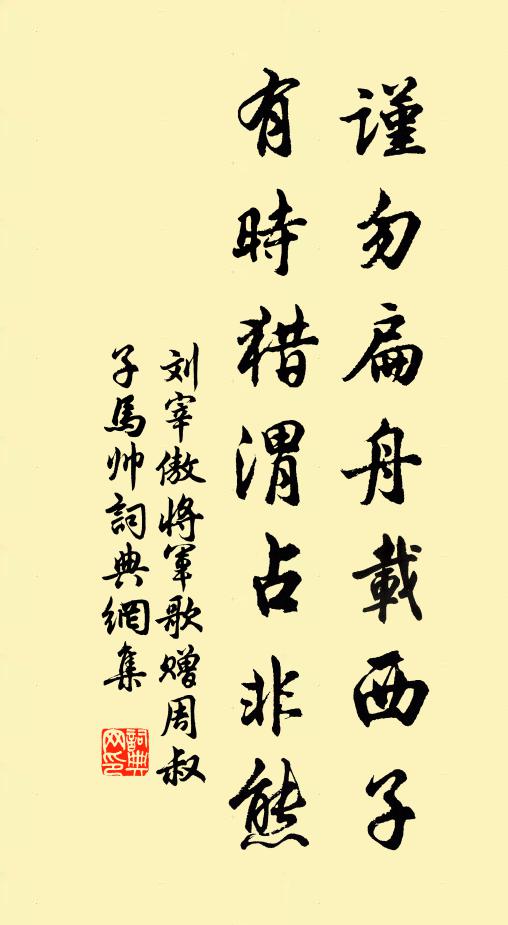 謹勿扁舟載西子
有時猎渭占非熊
刘宰傲将军歌赠周叔
子馬帅詞典網集
詞典网印